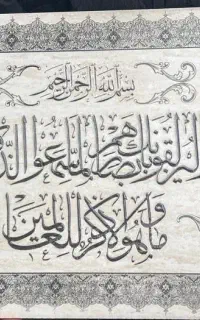 بسم الله الرحمن الرحيم
ليزلقونك بأبصارهم لما سمعوا
وما هو إلا ذكر للعالمين